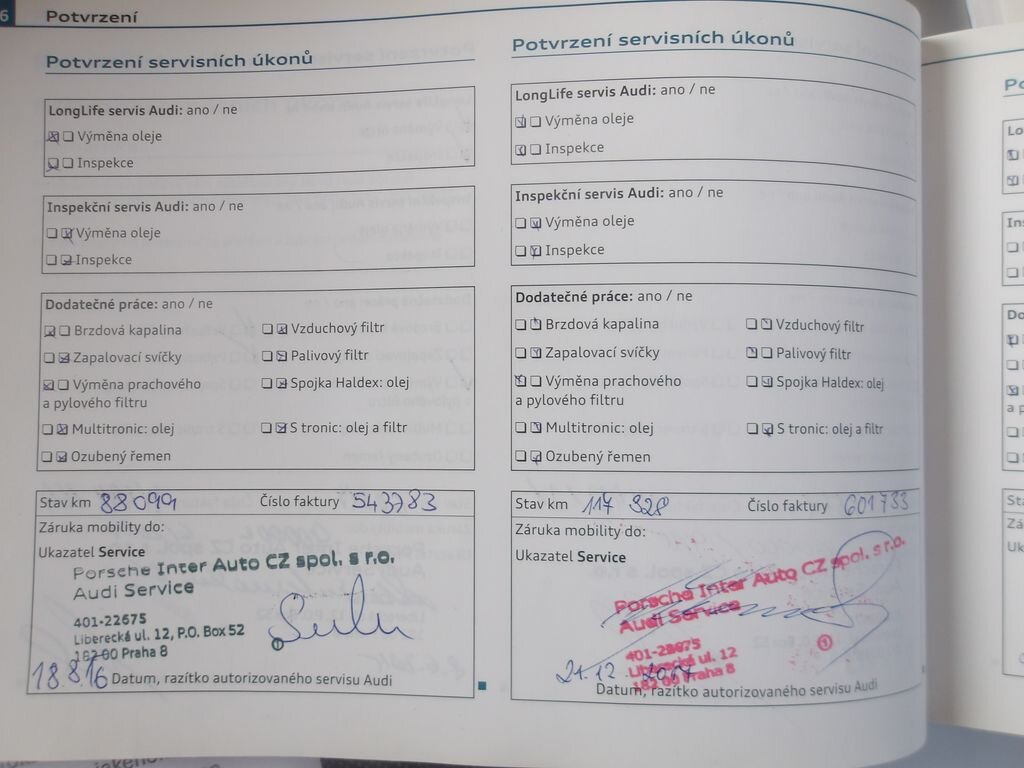 6 Potvrzení
Potvrzení servisních úkonů
LongLife servis Audi: ano / ne
Výměna oleje
Inspekce
Inspekční servis Audi: ano / ne
Výměna oleje
Inspekce
Dodatečné práce: ano / ne
Brzdová kapalina Vzduchový filtr
Zapalovací svíčky Palivový filtr
Výměna prachového Spojka Haldex: olej
a pylového filtru
Multitronic: olej S tronic: olej a filtr
Ozubený řemen
Stav km 88099 Číslo faktury 543783
Záruka mobility do:
Ukazatel Service
Porsche Inter Auto CZ spol. s r.o.
Audi Service
401-22675
Liberecká ul. 12, P.O. Box 52
182 00 Praha 8
18.8.16 Datum, razítko autorizovaného servisu Audi
Potvrzení servisních úkonů
LongLife servis Audi: ano / ne
Výměna oleje
Inspekce
Inspekční servis Audi: ano / ne
Výměna oleje
Inspekce
Dodatečné práce: ano / ne
Brzdová kapalina Vzduchový filtr
Zapalovací svíčky Palivový filtr
Výměna prachového Spojka Haldex: olej
a pylového filtru
Multitronic: olej S tronic: olej a filtr
Ozubený řemen
Stav km 117 328 Číslo faktury 601733
Záruka mobility do:
Ukazatel Service
Porsche Inter Auto CZ spol. s r.o.
Audi Service
401-22675
Liberecká ul. 12
182 00 Praha 8
21.12.2017
Datum, razítko autorizovaného servisu Audi